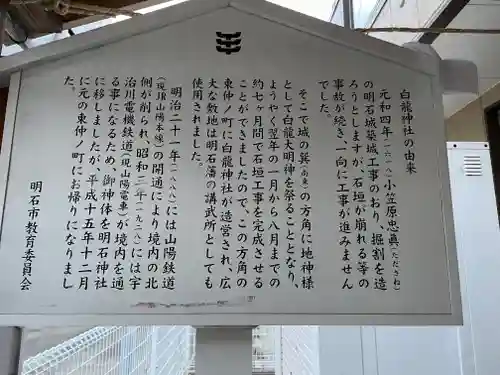 白龍神社の由来
元和四年(一六一八)小笠原忠真(ただざね)
の明石城築城工事のおり、掘割を造
ろうとしますが、石垣が崩れる等の
事故が続き、一向に工事が進みません
でした。
そこで城の巽(南東)の方角に地神様
として白龍大明神を祭ることとなり、
ようやく翌年の一月から八月までの
約七ヶ月間で石垣工事を完成させる
ことができましたので、この方角の
東仲ノ町に白龍神社が造営され、広
大な敷地は明石藩の講武所としても
使用されました。
明治二十一年(一八八八)には山陽鉄道
(現JR山陽本線)の開通により境内の北
側が削られ、昭和三年(一九二八)には宇
治川電機鉄道(現山陽電車)が境内を通
る事になるため、御神体を明石神社
に移しましたが、平成十五年十二月
に元の東仲ノ町にお帰りになりまし
た。
明石市教育委員会